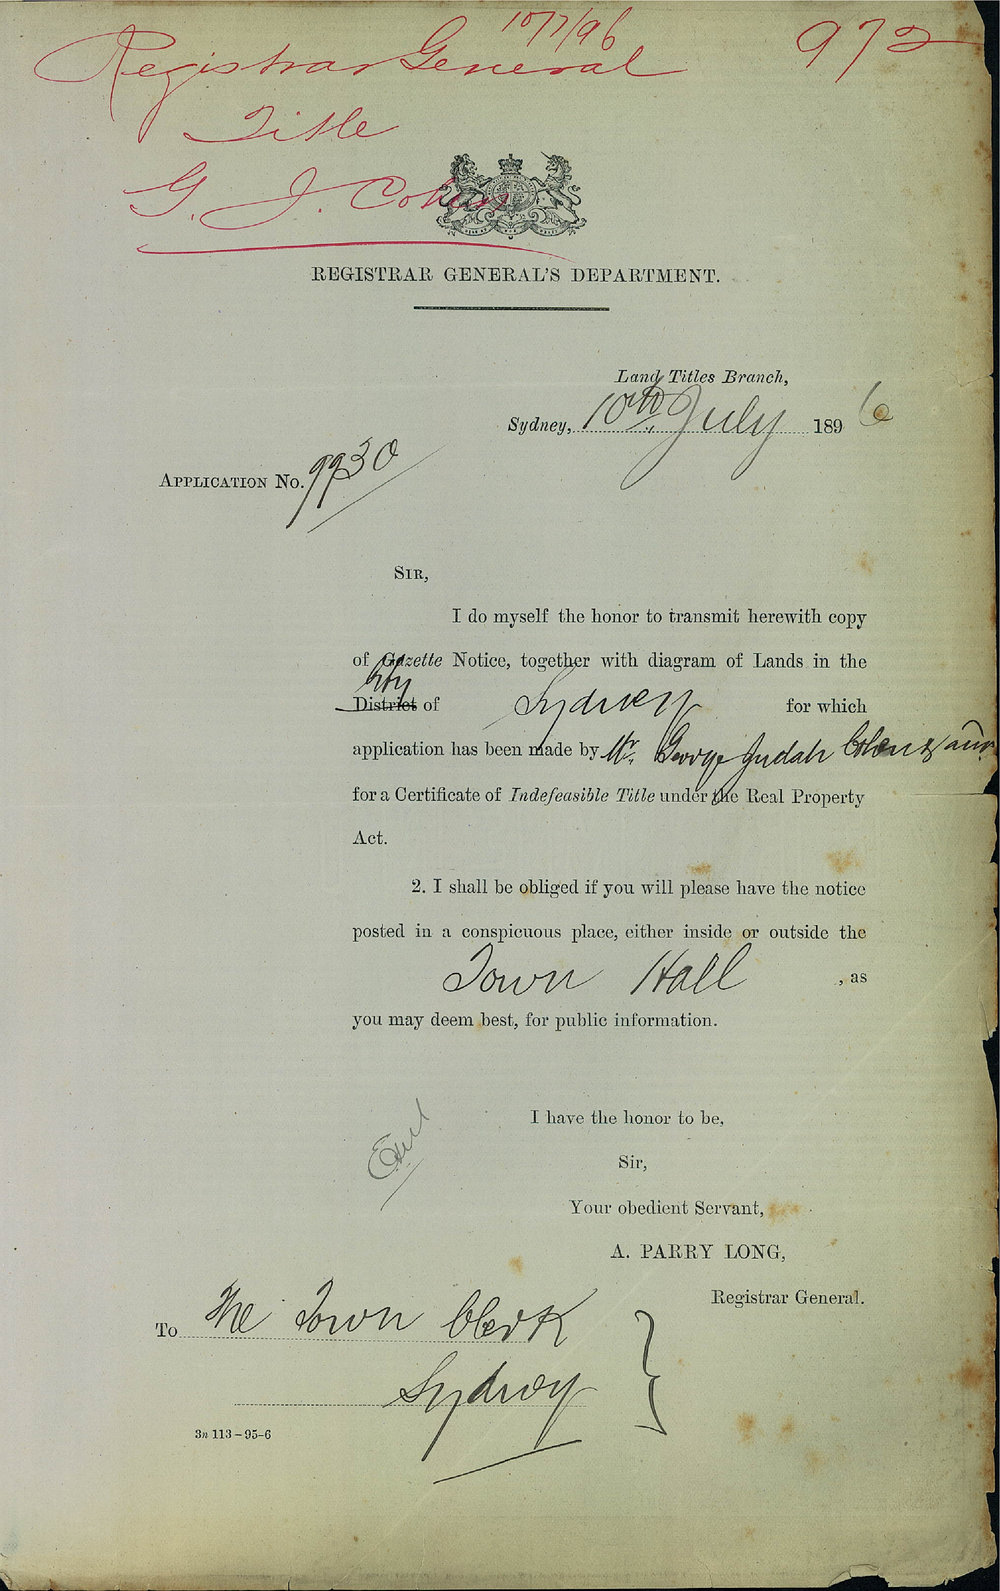 10/7/96
972
Registrar General
Title
G. J. Cohen
REGISTRAR GENERAL'S DEPARTMENT.
Land Titles Branch,
Sydney, 10th July 1896
APPLICATION NO. 9930
SIR,
I do myself the honor to transmit herewith copy
of Gazette Notice, together with diagram of Lands in the
City
District of Sydney for which
application has been made by Mr. George Judah Cohen & anr
for a Certificate of Indefeasible Title under the Real Property
Act.
2. I shall be obliged if you will please have the notice
posted in a conspicuous place, either inside or outside the
Town Hall , as
you may deem best, for public information.
I have the honor to be,
Sir,
Your obedient Servant,
A. PARRY LONG,
Registrar General.
To The Town Clerk
Sydney
3n 113-95-6